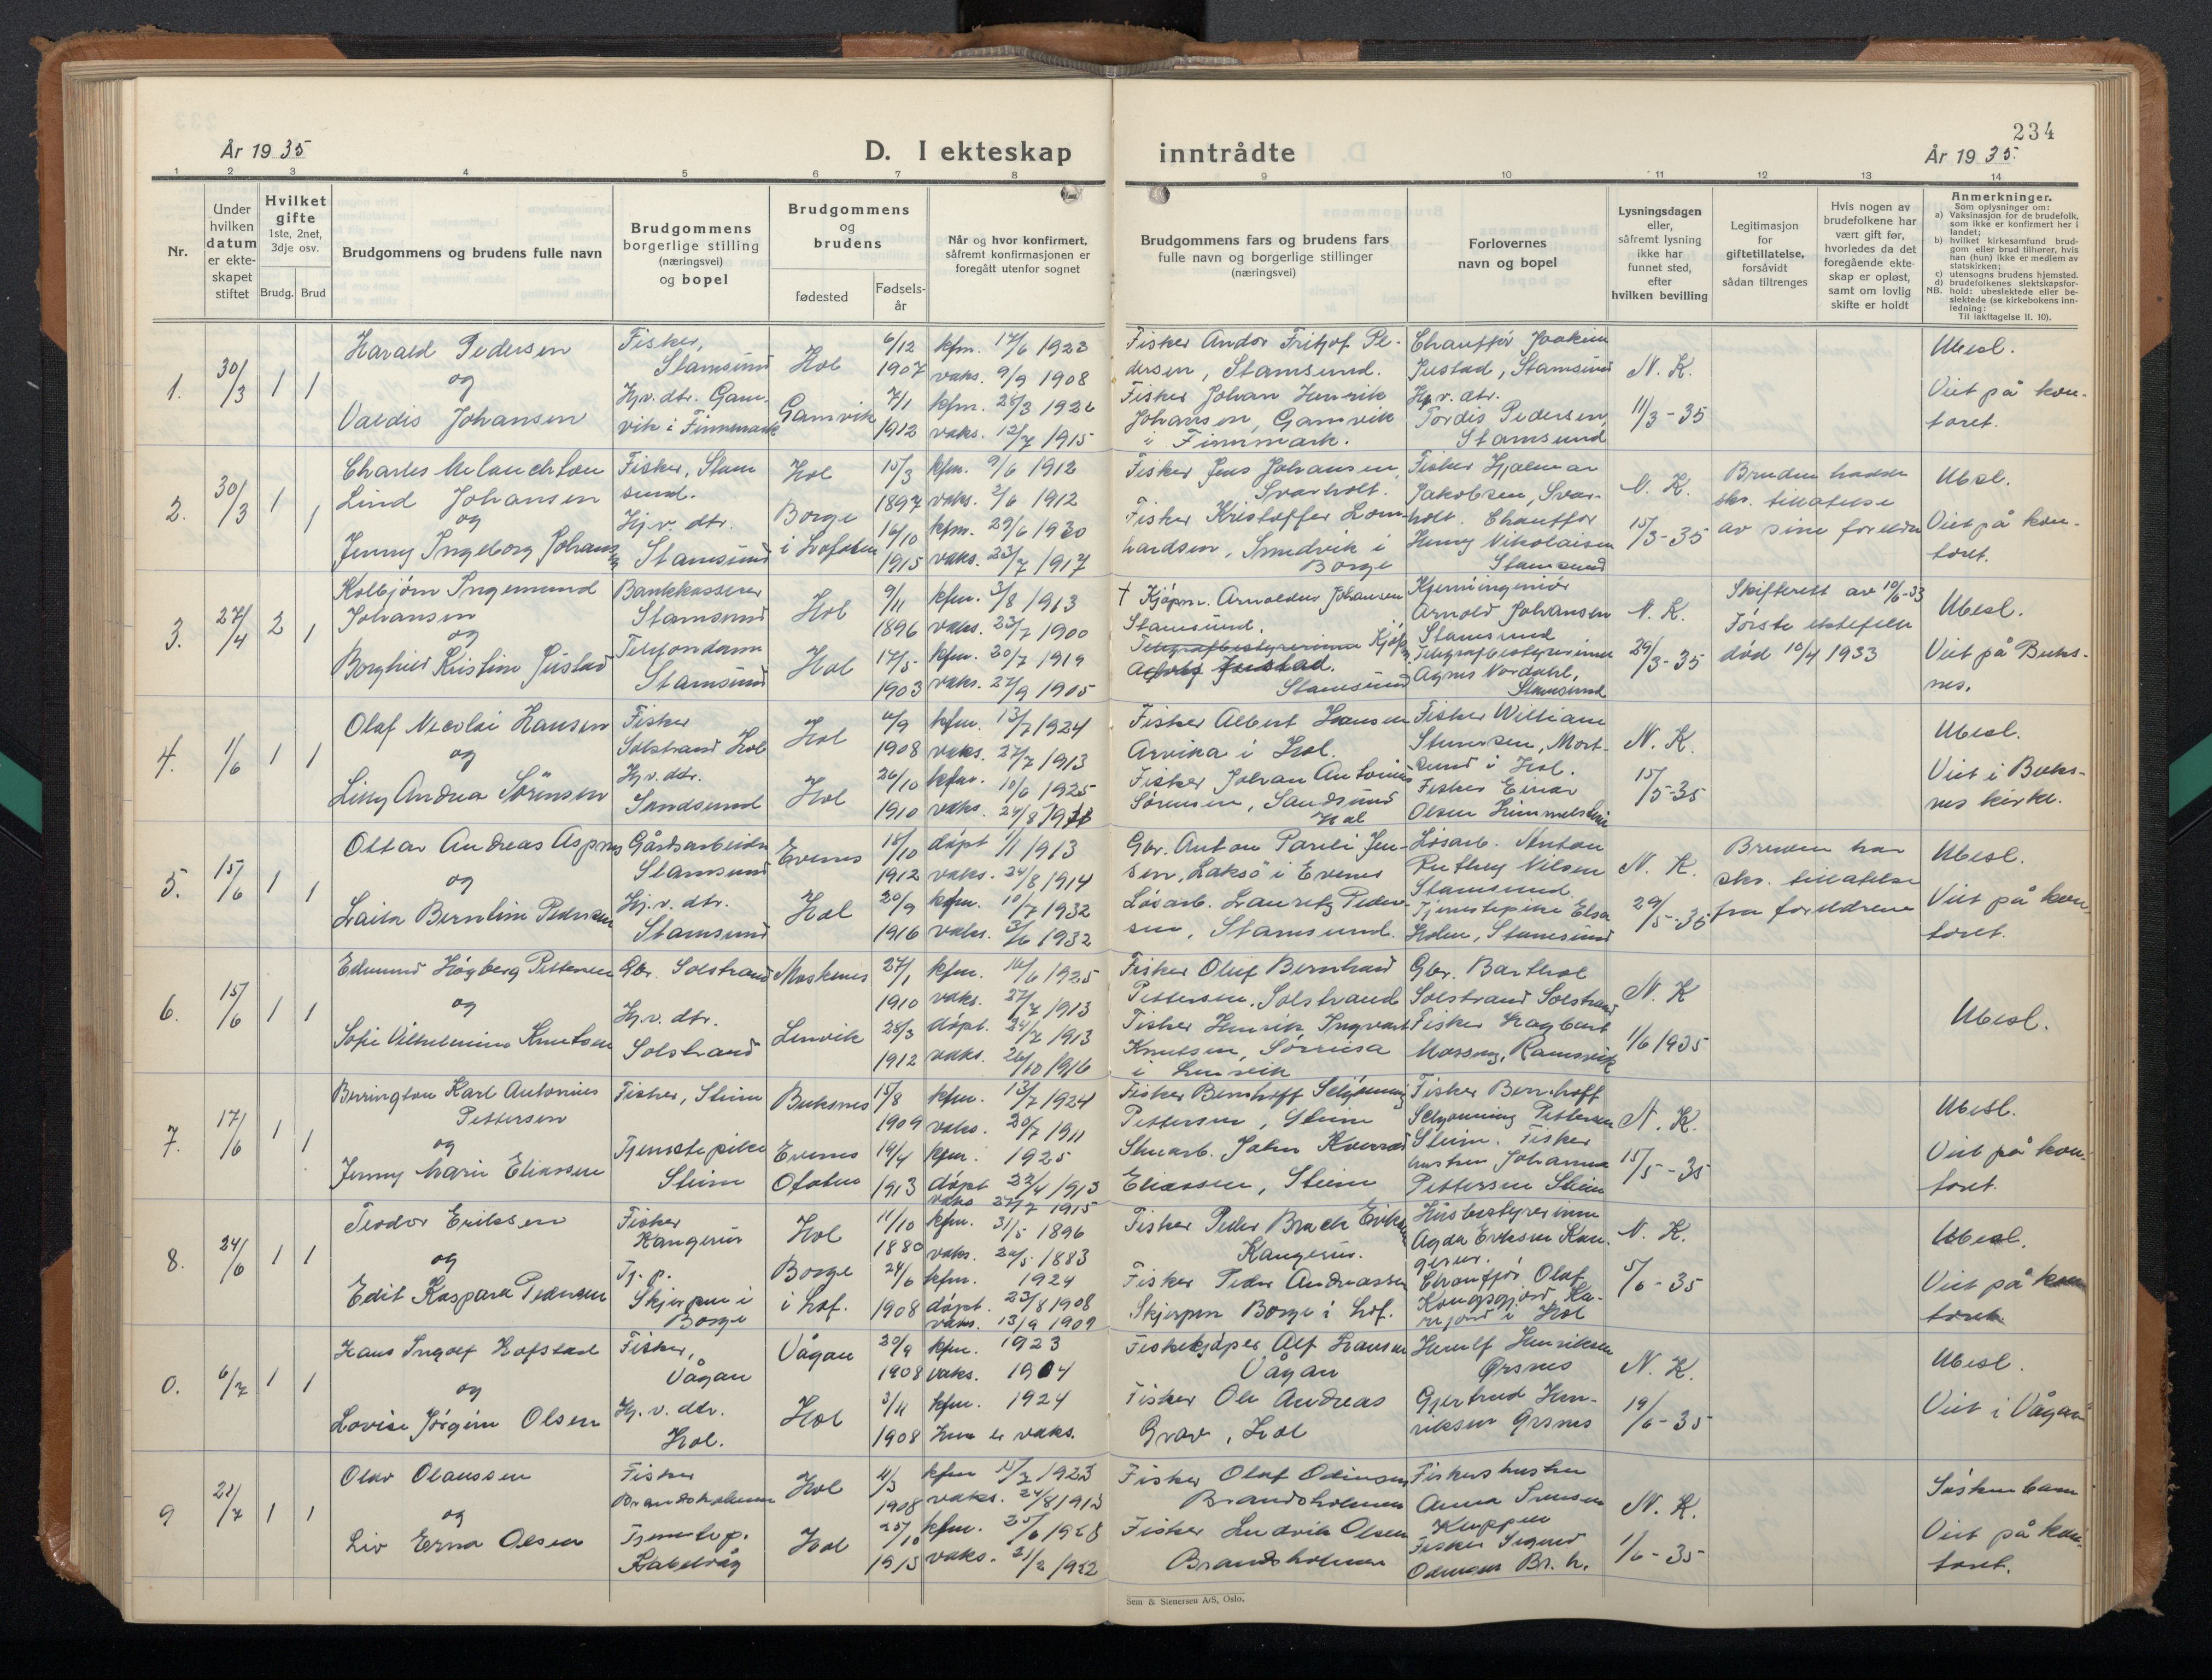 234
År 1935
D. I ekteskap inntrådte
År 1935.
1 2 3 4 5 6 7 8 9 10 11 12 13 14
Nr.
Under hvilken datum er ekteskapet stiftet
Hvilket gifte 1ste, 2net, 3dje osv.
Brudg. Brud
Brudgommens og brudens fulle navn
Brudgommens borgerlige stilling (næringsvei) og bopel
Brudgommens og brudens
fødested
Fødselsår
Når og hvor konfirmert, såfremt konfirmasjonen er foregått utenfor sognet
Brudgommens fars og brudens fars fulle navn og borgerlige stillinger (næringsvei)
Forlovernes navn og bopel
Lysningsdagen eller, såfremt lysning ikke har funnet sted, efter hvilken bevilling
Legitimasjon for giftetillatelse, forsåvidt sådan tiltrenges
Hvis nogen av brudefolkene har vært gift før, hvorledes da det foregående ekteskap er opløst, samt om lovlig skifte er holdt
Anmerkninger.
Som oplysninger om:
a) Vaksinasjon for de brudefolk, som ikke er konfirmert her i landet;
b) hvilket kirkesamfund brudgom eller brud tilhører, hvis han (hun) ikke er medlem av statskirken;
c) utensogns brudens hjemsted.
d) brudefolkenes slektskapsforhold: ubeslektede eller beslektede (se kirkebokens innledning:
NB.
Til iakttagelse II. 10).
1. 30/3 1 1
Harald Pedersen
og
Valdis Johansen
Fisker,
Stamsund
Hj.v. dtr. Gam-
vik i Finnmark
Hol
Gamvik
6/12
1907
7/1
1912
kfm. 17/6 1923
vaks. 9/9 1908
kfm. 28/3 1926
vaks. 12/7 1915
Fisker Andor Fritjof Pe-
dersen, Stamsund.
Fisker Johan Henrik
Johansen, Gamvik
i Finnmark.
Chauffør Joakim
Justad, Stamsund
Hj.v. dtr.
Tordis Pedersen,
Stamsund
N. K.
11/3-35
Ubesl.
Viet på kon-
toret.
2. 30/3 1 1
Charles Melanchton
Lind Johansen
og
Jenny Ingeborg Johans
Fisker, Stam
sund.
Hj.v. dtr.
Stamsund
Hol
Borge
i Lofoten
15/3
1897
16/10
1915
kfm. 9/6 1912
vaks. 2/6 1912
kfm. 29/6 1930
vaks. 23/7 1917
Fisker Jens Johansen
Svarholt.
Fisker Kristoffer Leon-
hardsen, Smedvik i
Borge
Fisker Hjalmar
Jakobsen, Svar-
holt. Chauffør
Henny Nikolaisen
Stamsund
N. K.
15/3-35
Bruden hadde
skr. tillatelse
av sine foreldre
Ubesl.
Viet på kon-
toret.
3. 27/4 2 1
Kolbjørn Ingemund
Johansen
og
Borghild Kristine Justad
Bankkasserer
Stamsund
Telefondame
Stamsund
Hol
Hol
9/11
1896
17/5
1903
kfm. 3/8 1913
vaks. 23/7 1900
kfm. 20/7 1919
vaks. 27/9 1905
† Kjøpm. Arnoldus Johansen
Stamsund.
Telegrafbestyrerinne Kjøpm.
Adolf Justad.
Stamsund
Kjemiingeniør
Arnold Johansen
Stamsund
Telegrafbestyrerinne
Agnes Nordahl,
Stamsund
N. K.
29/3-35
Skifterett av 10/6-33
Første ektefelle
død 10/4 1933
Ubesl.
Viet på Buks-
nes.
4. 1/6 1 1
Olaf Nicolai Hansen
og
Lilly Andrea Sørensen
Fisker
Solstrand Hol
Hj.v. dtr.
Sandsund
Hol
Hol
4/9
1908
26/10
1910
kfm. 13/7 1924
vaks. 27/7 1913
kfm. 10/6 1925
vaks. 24/8 1911
Fisker Albert Hansen
Arvika i Hol.
Fisker Johan Antonius
Sørensen, Sandsund
Hol
Fisker William
Stenersen, Mort-
sund i Hol.
Fisker Einar
Olsen
N. K.
15/5-35
Ubesl.
Viet i Buks-
nes kirke.
5. 15/6 1 1
Ottar Andreas Aspnes
og
Laila Bernline Pedersen
Gårdsarbeider
Stamsund
Hj.v. dtr.
Stamsund
Evenes
Hol
18/10
1912
20/9
1916
døpt 1/1 1913
vaks. 24/8 1914
kfm. 10/7 1932
vaks. 3/6 1932
Gbr. Anton Pareli Jen-
sen, Laksø i Evenes
Løsarb. Lauritz Peder-
sen, Stamsund.
Løsarb. Anton
Nilsen
Stamsund
Tjenestepike Elsa
Holm, Stamsund
N. K.
29/5-35
Bruden har
skr. tillatelse
fra foreldrene
Ubesl.
Viet på kon-
toret.
6. 15/6 1 1
Edmund Høgberg Pettersen
og
Sofie Vilhelmine Knutsen
Gbr. Solstrand
Hj.v. dtr.
Solstrand
Moskenes
Lenvik
27/1
1910
28/3
1912
kfm. 14/6 1925
vaks. 27/7 1913
døpt. 24/7 1913
vaks. 26/10 1916
Fisker Oluf Bernhard
Pettersen, Solstrand
Fisker Henrik Ingvart
Knutsen, Sørreisa
i Lenvik
Gbr. Barthol
Solstrand Solstrand
Fisker Hagbart
Mosseng, Ramsvik
N. K
1/6 1935
Ubesl.
7. 17/6 1 1
Berrington Karl Antonius
Pettersen
og
Jenny Marie Eliassen
Fisker, Steine
Tjenestepike
Steine
Buksnes
Evenes
Ofoten
15/8
1909
19/4
1913
kfm. 13/7 1924
vaks. 20/7 1911
kfm. 1925
døpt 22/4 1913
vaks 27/7 1915
Fisker Bernhoff Schjønning
Pettersen, Steine
Stuearb. John Konrad
Eliassen, Steine
Fisker Bernhoff
Schjønning Pettersen
Steine. Fisker
hustru Johanna
Pettersen Steine
N. K.
15/5-35
Ubesl.
Viet på kon-
toret.
8. 24/6 1 1
Teodor Eriksen
og
Edit Kaspara Pedersen
Fisker
Kangerur
Tj. p.
Skjerpen i
Borge
Hol
Borge
i Lof.
11/10
1880
24/6
1908
kfm. 31/5 1896
vaks. 24/5 1883
kfm. 1924
døpt. 23/8 1908
vaks. 13/9 1909
Fisker Peder Brock Eriksen
Kangerur.
Fisker Peder Andreassen
Skjerpen Borge i Lof.
Husbestyrerinne
Agda Eriksen Kan-
gerur.
Chaufør Olaf
Kongsgjord
i Hol
N. K.
5/6-35
Ubesl.
Viet på kon
toret.
0. 6/7 1 1
Hans Ingolf Hofstad
og
Lovise Jørgine Olsen
Fisker,
Vågan
Hj.v. dtr.
Hol.
Vågan
Hol
20/9
1908
3/11
1908
kfm. 1923
vaks. 1904
kfm. 1924
Hun er vaks.
Fiskekjøper Alf Hansen
Vågan
Fisker Ole Andreas
Grav, Hol
Herulf Henriksen
Ørsnes
Gjertrud Hen-
riksen Ørsnes
N. K.
19/6-35
Ubesl.
Viet i Vågan
9 21/7 1 1
Olav Olaussen
og
Liv Erna Olsen
Fisker
Brandsholmen
Tjenestep.
Kabelvåg
Hol
Hol
4/3
1908
25/10
1913
kfm 15/7 1923
vaks. 24/8 1913
kfm. 25/6 1928
vaks. 21/2 1922
Fisker Olaf Odinsen
Brandsholmen
Fisker Ludvik Olsen
Brandsholmen
Fiskershustru
Anna Svensen
Kleppen
Fisker Sigurd
Odinsen Br. h.
N. K.
1/6-35
Søskenbarn
Viet på kon-
toret.
Sem & Stenersen A/S, Oslo.